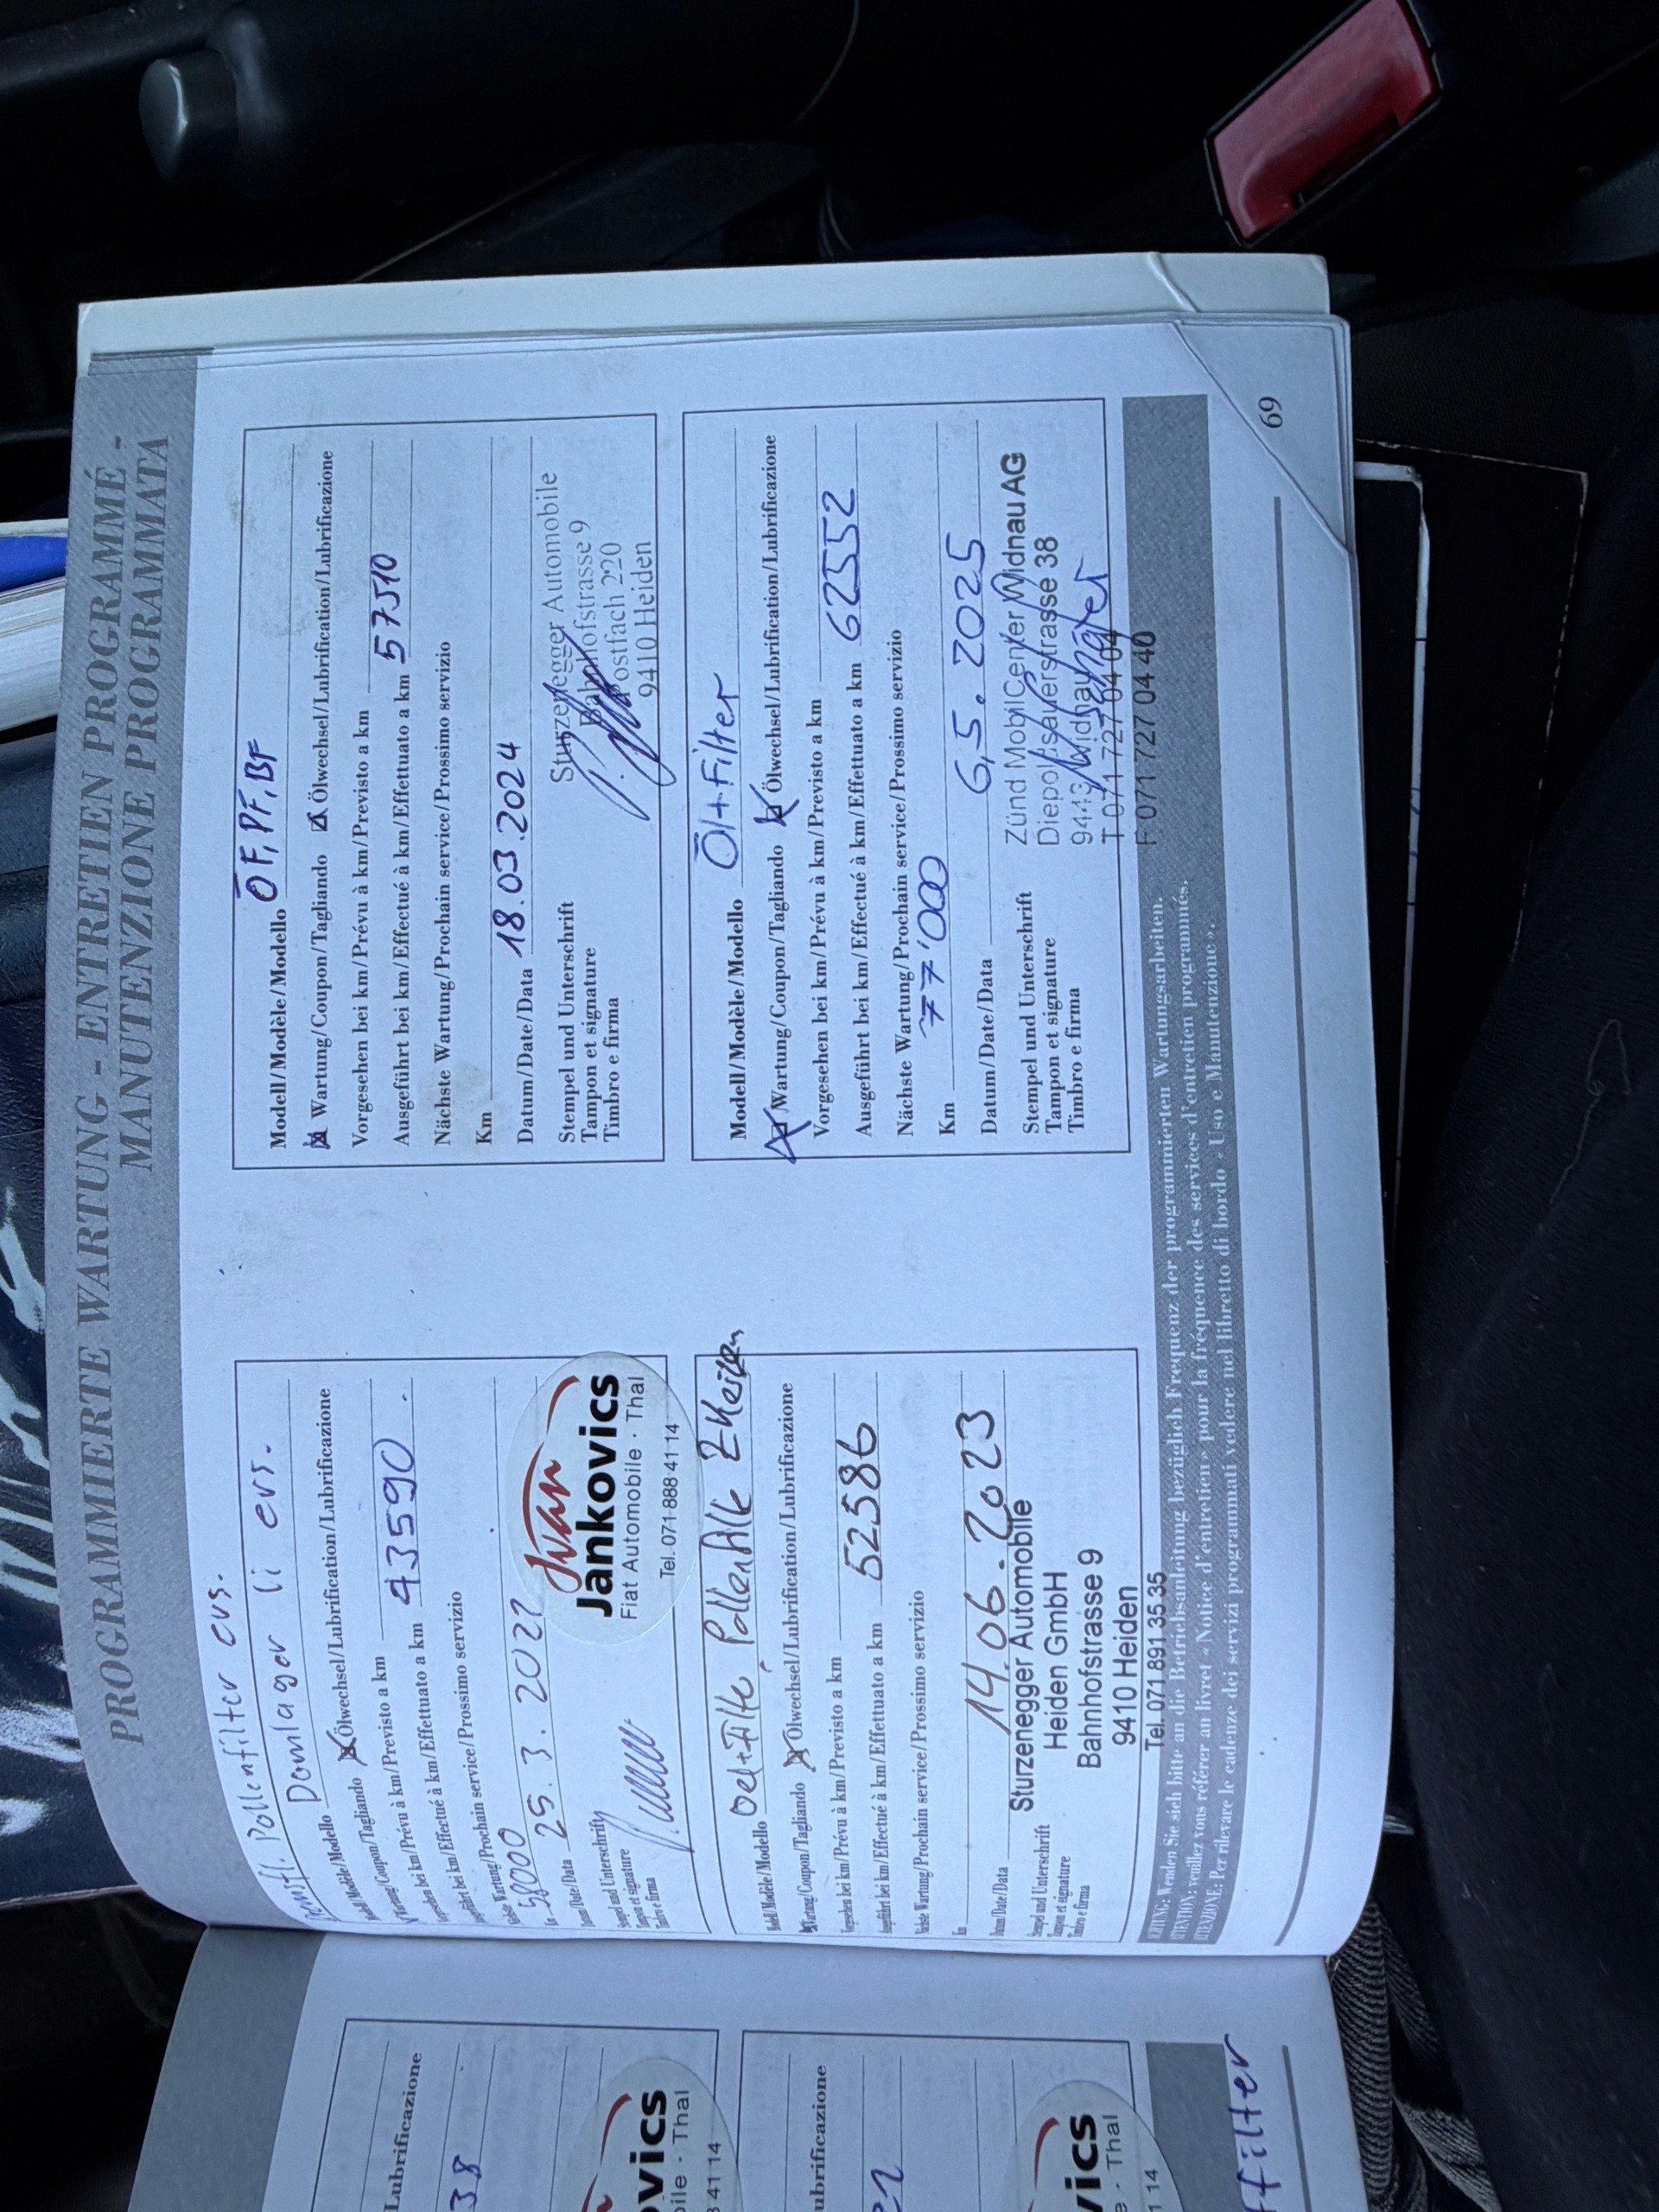 PROGRAMMIERTE WARTUNG - ENTRETIEN PROGRAMMÉ -
MANUTENZIONE PROGRAMMATA
Pollenfilter ers.
Modell/Modèle/Modello Domlager li ers.
Wartung/Coupon/Tagliando Ölwechsel/Lubrification/Lubrificazione
Vorgesehen bei km/Prévu à km/Previsto a km
Ausgeführt bei km/Effectué à km/Effettuato a km 43590
Nächste Wartung/Prochain service/Prossimo servizio
Km 58000
Datum/Date/Data 25.3.2022
Stempel und Unterschrift
Tampon et signature
Timbro e firma
Ivan
Jankovics
Fiat Automobile · Thal
Tel. 071 888 41 14
Modell/Modèle/Modello Oel+Filte Pollenfilte 2 Keilrn
Wartung/Coupon/Tagliando Ölwechsel/Lubrification/Lubrificazione
Vorgesehen bei km/Prévu à km/Previsto a km
Ausgeführt bei km/Effectué à km/Effettuato a km 52586
Nächste Wartung/Prochain service/Prossimo servizio
Km
Datum/Date/Data 14.06.2023
Stempel und Unterschrift
Tampon et signature
Timbro e firma
Sturzenegger Automobile
Heiden GmbH
Bahnhofstrasse 9
9410 Heiden
Tel. 071 891 35 35
Modell/Modèle/Modello ÖF, PF, BF
Wartung/Coupon/Tagliando Ölwechsel/Lubrification/Lubrificazione
Vorgesehen bei km/Prévu à km/Previsto a km
Ausgeführt bei km/Effectué à km/Effettuato a km 57510
Nächste Wartung/Prochain service/Prossimo servizio
Km
Datum/Date/Data 18.03.2024
Stempel und Unterschrift
Tampon et signature
Timbro e firma
Sturzenegger Automobile
Bahnhofstrasse 9
Postfach 220
9410 Heiden
Modell/Modèle/Modello Öl+Filter
Wartung/Coupon/Tagliando Ölwechsel/Lubrification/Lubrificazione
Vorgesehen bei km/Prévu à km/Previsto a km
Ausgeführt bei km/Effectué à km/Effettuato a km 62552
Nächste Wartung/Prochain service/Prossimo servizio
Km 77'000
Datum/Date/Data 6.5.2025
Stempel und Unterschrift
Tampon et signature
Timbro e firma
Zünd MobilCenter Widnau AG
Diepoldsauerstrasse 38
9443 Widnau
T 071 727 04 04
F 071 727 04 40
ACHTUNG: Wenden Sie sich bitte an die Betriebsanleitung bezüglich Frequenz der programmierten Wartungsarbeiten.
ATTENTION: veuillez vous référer au livret « Notice d'entretien » pour la fréquence des services d'entretien programmés.
ATTENZIONE: Per rilevare le cadenze dei servizi programmati vedere nel libretto di bordo « Uso e Manutenzione ».
69
Lubrificazione
38
vics
bile · Thal
41 14
ubrificazione
vics
e · Thal
1 14
ffilter